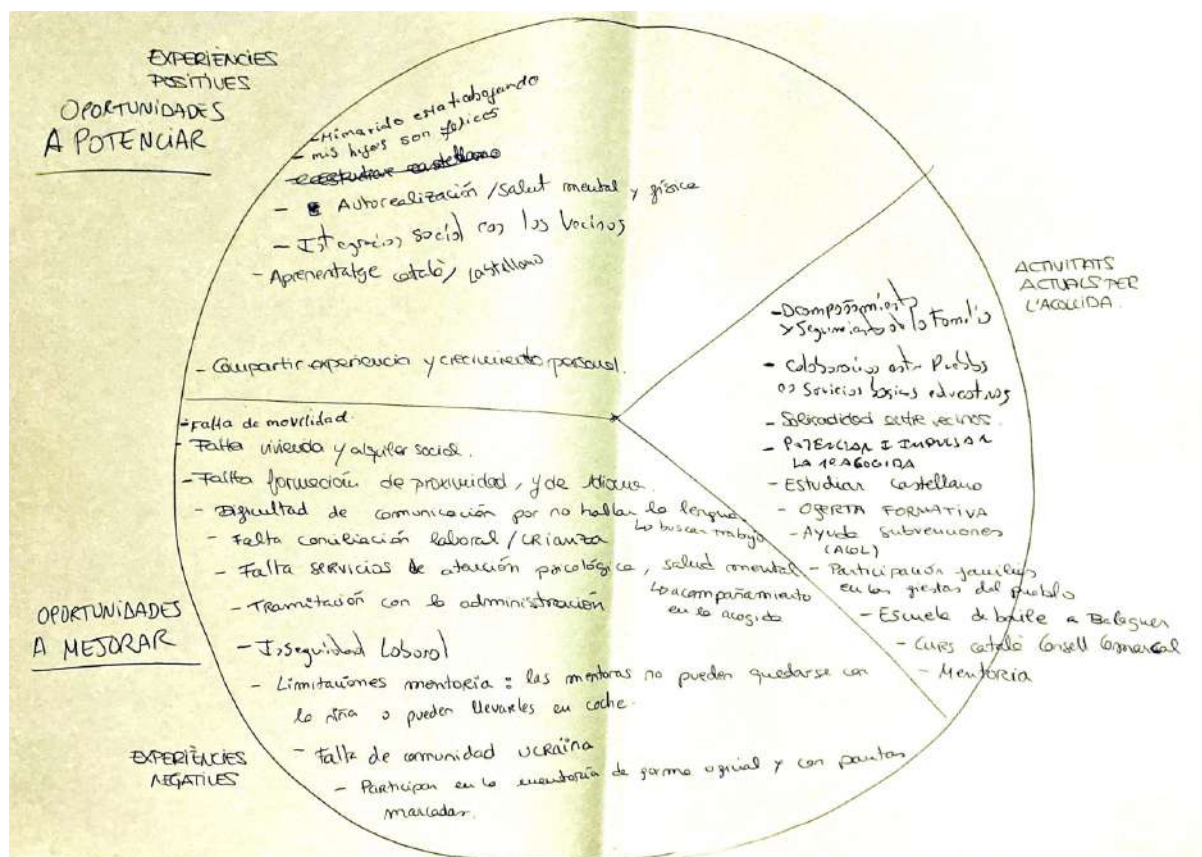 EXPERIÈNCIES
POSITIVES
OPORTUNIDADES
A POTENCIAR
- Mi marido esta trabajando
- mis hijos son felices
- estudiar castellano
- Autorealización / Salut mental y física
- Integracion social con los Vecinos
- Aprenentatge català / castellano
- Compartir experiencia y crecimiento personal.
ACTIVITATS
ACTUALS PER
L'ACOLLIDA.
- Acompañamiento
y Seguimiento de la Familia
- Colaboracion entre Pueblos
en Servicios basicos educativos
- Solidaridad entre vecinos.
- POTENCIAR I IMPULSAR
LA
- Estudiar castellano
- OFERTA FORMATIVA
- Ayuda subvenciones
(ACOL)
- Participación familias
en las fiestas del pueblo
- Escuela de baile a Balaguer
- Curs català Consell Comarcal
- Mentoria
- Falta de movilidad.
- Falta vivienda y alquiler social.
- Falta formación de proximidad, y de idioma.
- Dificultad de comunicación por no hablar la lengua
↳ buscar trabajo
- Falta conciliación laboral / CRIANZA
- Falta SERVICIOS de atención psicológica, salud mental
↳ acompañamiento
en la acogida
- Tramitación con la administración
- Inseguridad Laboral
- Limitaciones mentoria : las mentoras no pueden quedarse con
la niña o pueden llevarles en coche.
- Falta de comunidad UCRAÏNA
- Participar en la mentoría de forma oficial y con pautas
marcadas.
OPORTUNIDADES
A MEJORAR
EXPERIÈNCIES
NEGATIVES